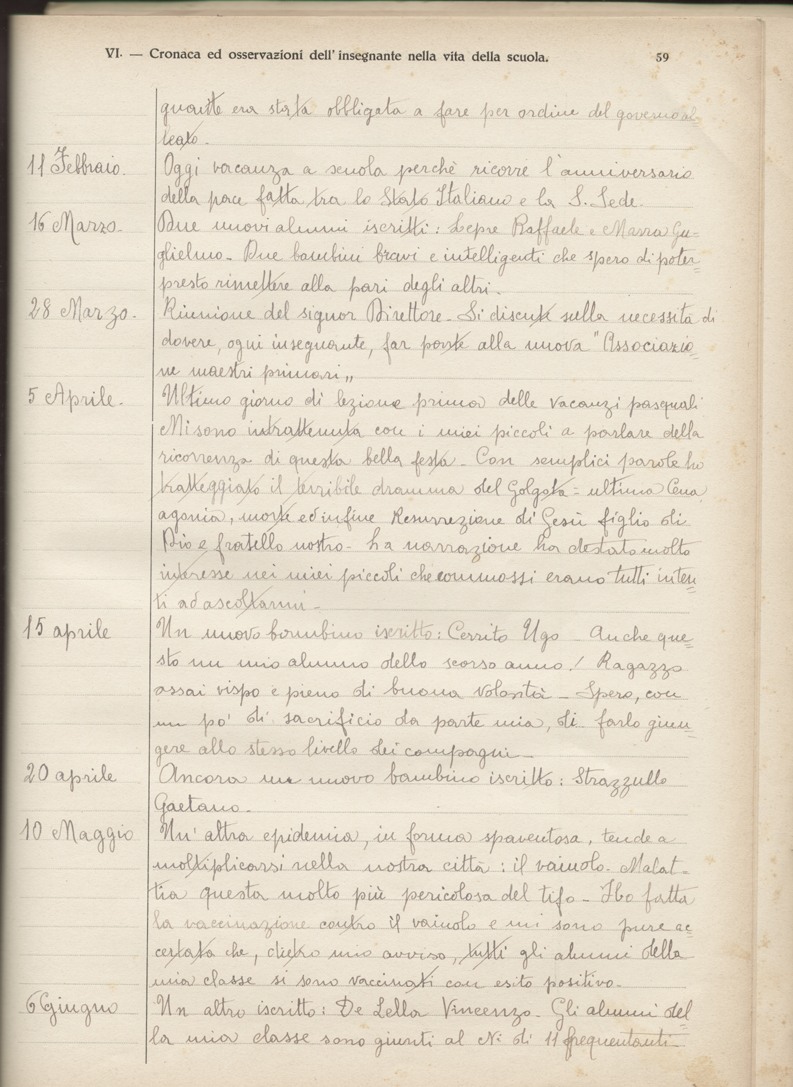 VI. — Cronaca ed osservazioni dell'insegnante nella vita della scuola. 59
quante era stata obbligata a fare per ordine del governo al
leato.
11 Febbraio. Oggi vacanza a scuola perchè ricorre l'anniversario
della pace fatta tra lo Stato Italiano e la S. Sede.
16 Marzo. Due nuovi alunni iscritti: Lepre Raffaele e Massa Gu=
glielmo. Due bambini bravi e intelligenti che spero di poter
presto rimettere alla pari degli altri.
28 Marzo. Riunione del signor Direttore. Si discute sulla necessità di
dovere, ogni insegnante, far parte alla nuova "Associazio
ne maestri primari„
5 Aprile. Ultimo giorno di lezione prima delle vacanzi pasquali
Mi sono intrattenuta con i miei piccoli a parlare della
ricorrenza di questa bella festa. Con semplici parole ho
tratteggiato il terribile dramma del Golgota = ultima Cena
agonia, morte ed infine Resurrezione di Gesù figlio di
Dio e fratello nostro. La narrazione ha destato molto
interesse nei miei piccoli che commossi erano tutti inten
ti ad ascoltarmi.
15 aprile Un nuovo bambino iscritto: Cerrito Ugo – Anche que=
sto un mio alunno dello scorso anno! Ragazzo
assai vispo e pieno di buona volontà – Spero, con
un po' di sacrificio da parte mia, di farlo giun=
gere allo stesso livello dei compagni –
20 aprile Ancora un nuovo bambino iscritto: Strazzullo
Gaetano.
10 Maggio Un'altra epidemia, in forma spaventosa, tende a
moltiplicarsi nella nostra città: il vaiuolo. Malat=
tia questa molto più pericolosa del tifo – Ho fatta
la vaccinazione contro il vaiuolo e mi sono pure ac
certata che, dietro mio avviso, tutti gli alunni della
mia classe si sono vaccinati con esito positivo.
6 Giugno Un altro iscritto: De Lella Vincenzo. Gli alunni del
la mia classe sono giunti al N: di 11 frequentanti –